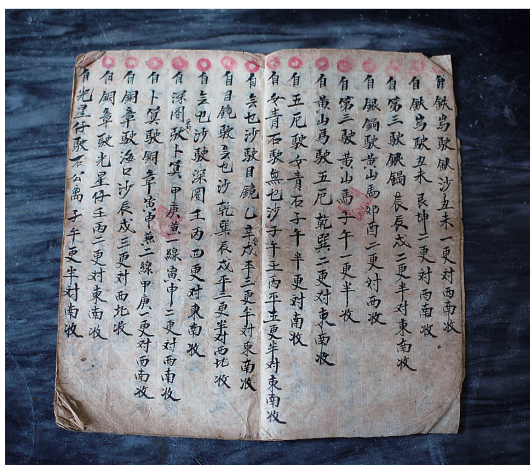 自鉄峙駛鉄沙丑未一更对西南收
自鉄峙駛丑未艮坤二更对西南收
自第三駛銀鍋辰戌二更半对東南收
自銀鍋駛黄山馬卯酉二更对西收
自第三駛黄山馬子午一更半收
自黄山馬駛五风乾巽二更对東南收
自五风駛女青石子午半更对南收
自女青石駛無乜沙子午壬丙平更半对東南收
自無乜沙駛目鏡乙辛戌平三更半对東南收
自目鏡駛無乜沙乾巽辰戌平三更半对西北收
自無乜沙駛深圈壬丙四更对東南收
自深圈駛卜算甲庚兼一線寅申二更对西南收
自卜算駛銅章寅申兼二線甲庚一更对西南收
自銅章駛海口沙辰戌三更对西北收
自銅章駛光星仔壬丙二更对東南收
自光星仔駛石公厘子午更半对南收